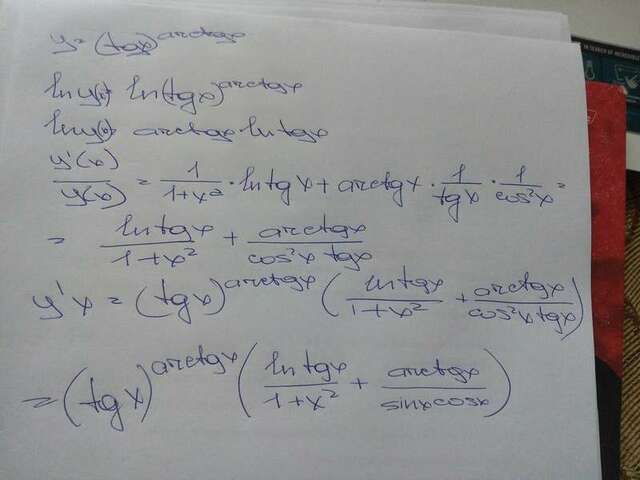 y = (tgx)^arctgx
ln y(x) = ln(tgx)^arctgx
ln y(x) = arctgx · ln tgx
y'(x)/y(x) = 1/(1+x²) · ln tg x + arctgx · 1/tgx · 1/cos²x =
= ln tgx/(1+x²) + arctgx/(cos²x tgx)
y'x = (tgx)^arctgx (ln tgx/(1+x²) + arctgx/(cos²x tgx))
= (tg x)^arctgx (ln tgx/(1+x²) + arctgx/(sinx cosx))